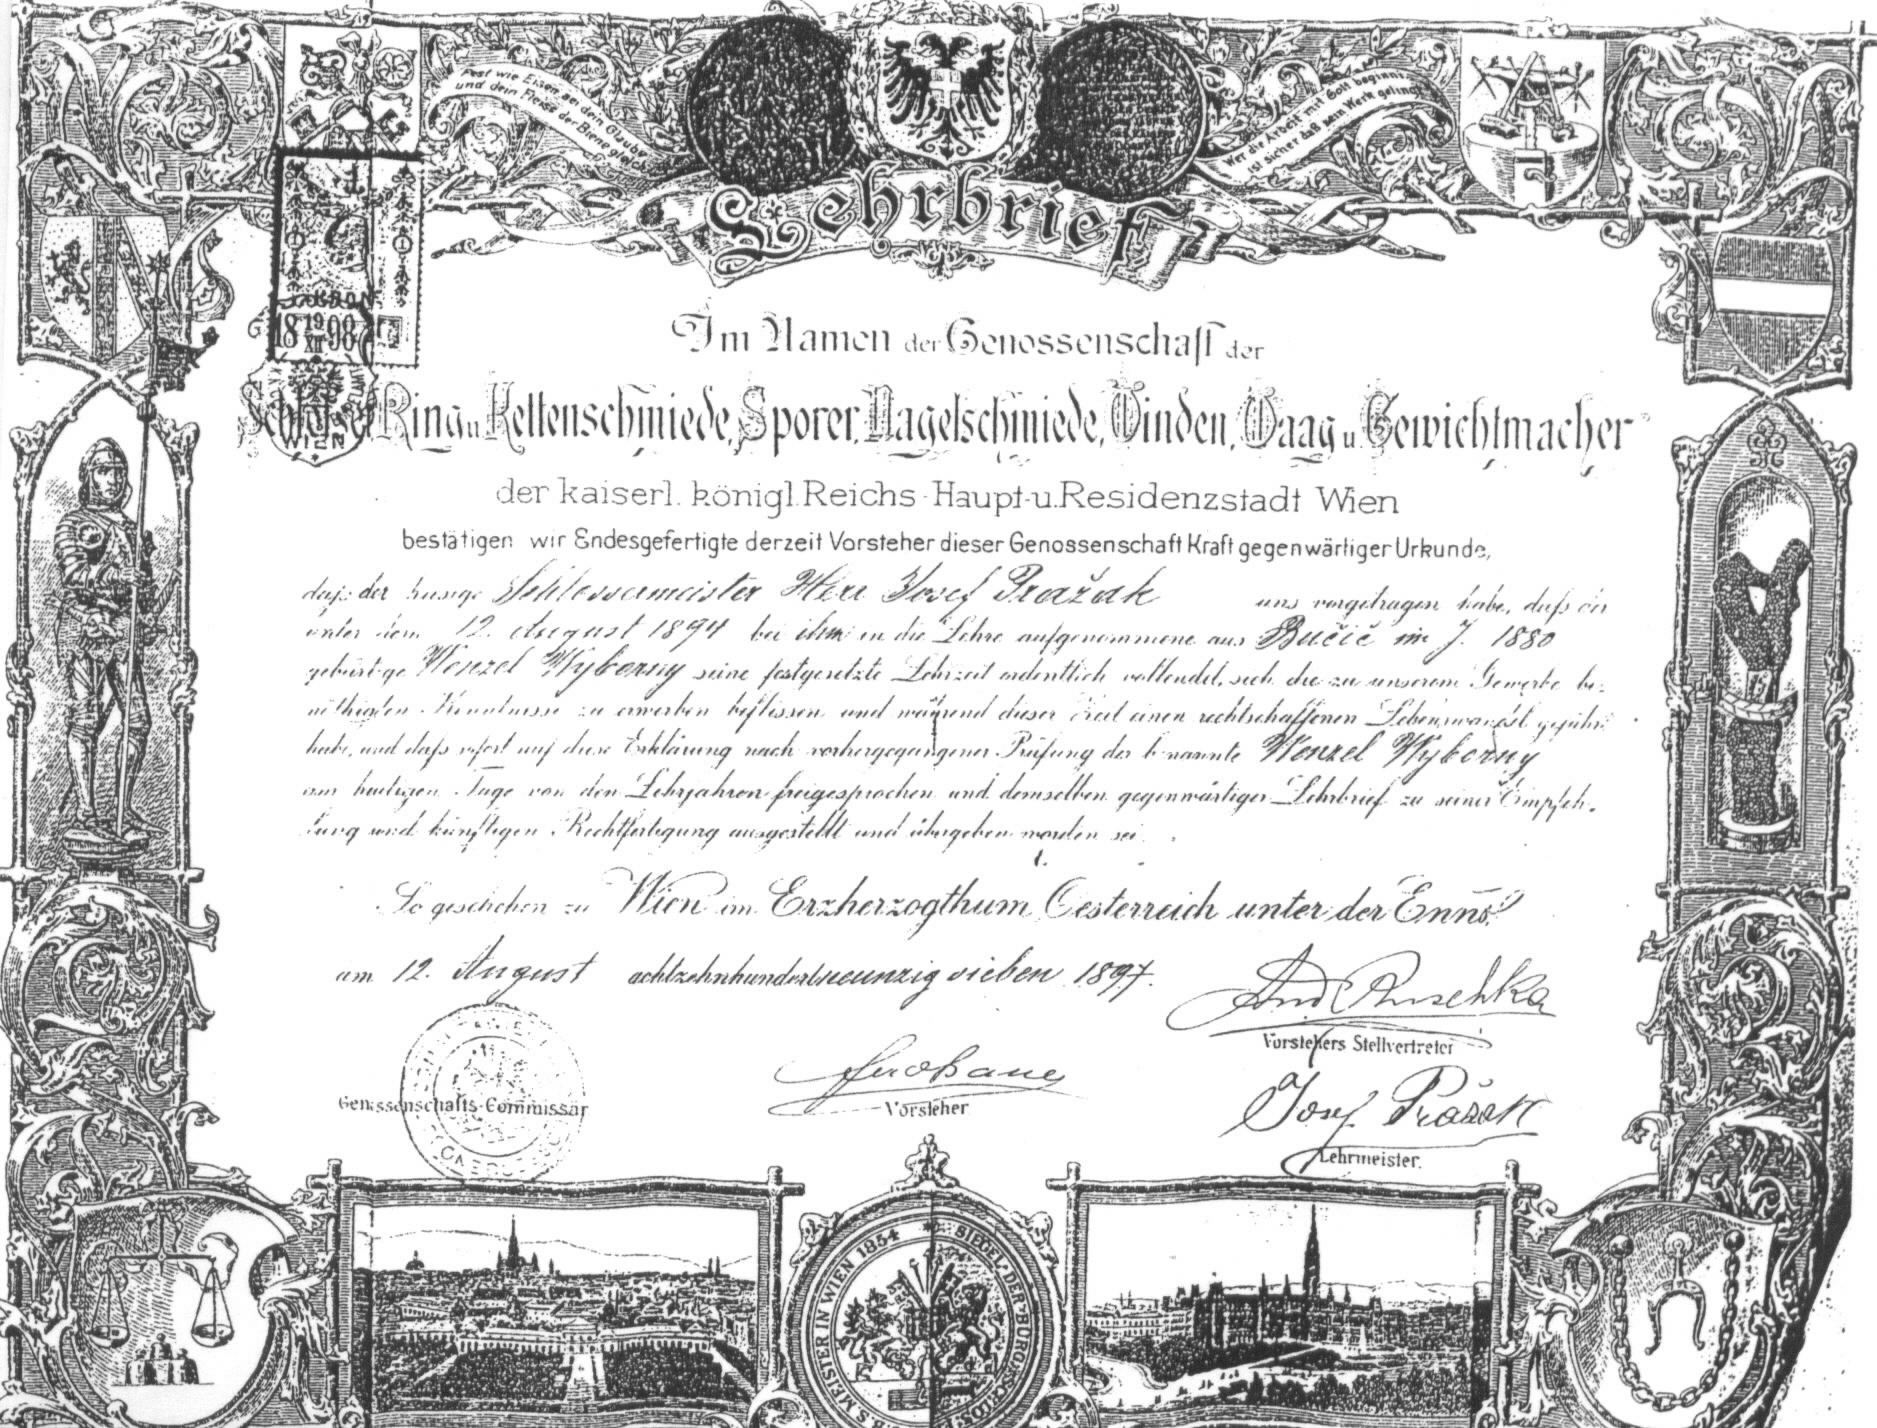 Fest wie Eisen sei dein Glaube
und dein Fleiss der Biene gleich
Wer die Arbeit mit Gott beginnt
ist sicher daß sein Werk gelingt
Lehrbrief
18 19 98
XII
Im Namen der Genossenschaft der
Schlosser, Ring u. Kettenschmiede, Sporer, Nagelschmiede, Winden, Waag u. Gewichtmacher
WIEN
der kaiserl. königl. Reichs-Haupt-u. Residenzstadt Wien
bestätigen wir Endesgefertigte derzeit Vorsteher dieser Genossenschaft Kraft gegenwärtiger Urkunde,
daß der hiesige Schlossermeister Herr Josef Pražak uns vorgetragen habe, daß der
unter dem 12. August 1894 bei ihm in die Lehre aufgenommene aus Bučič im J. 1880
gebürtige Wenzel Wyborny seine festgesetzte Lehrzeit ordentlich vollendet, sich die zu unserem Gewerbe be-
nöthigten Kenntnisse zu erwerben beflissen und während dieser Zeit einen rechtschaffenen Lebenswandel geführt
habe, und daß sofort auf diese Erklärung nach vorhergegangener Prüfung der benannte Wenzel Wyborny
am heutigen Tage von den Lehrjahren freigesprochen und demselben gegenwärtiger Lehrbrief zu seiner Empfeh-
lung und künftigen Rechtfertigung ausgestellt und übergeben worden sei.
So geschehen zu Wien im Erzherzogthum Oesterreich unter der Enns
am 12. August achtzehnhundertneunzig sieben 1897.
Vorstehers Stellvertreter
Genossenschafts-Commissär
Vorsteher
Josef Pražak
Lehrmeister.
MEISTER IN WIEN 1854 * SIEGEL DER BÜRG. SCHLOS